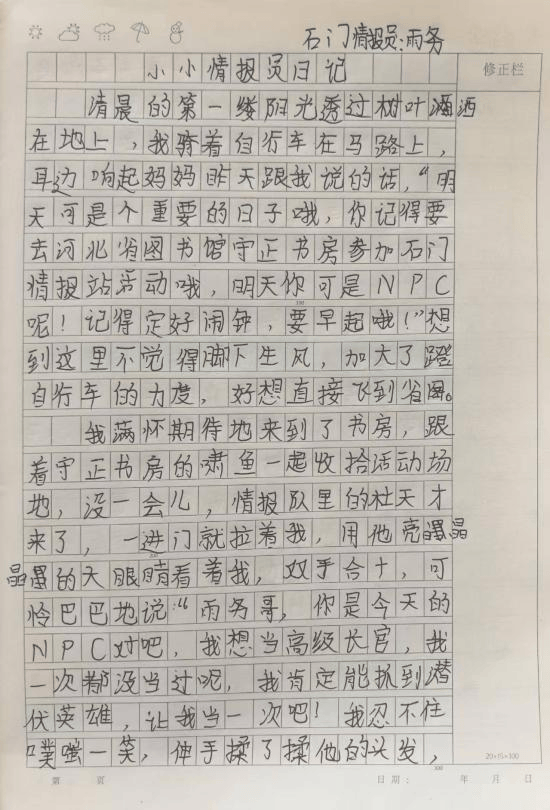 石门情报员:雨务
小小情报员日记
修正栏
清晨的第一缕阳光透过树叶洒
在地上，我骑着自行车在马路上，
耳边响起妈妈昨天跟我说的话，“明
天可是个重要的日子哦，你记得要
去河北省图书馆守正书房参加石门
情报站活动哦，明天你可是NPC
呢！记得定好闹钟，要早起哦！”想
到这里不觉得脚下生风，加大了蹬
自行车的力度，好想直接飞到省图。
我满怀期待地来到了书房，跟
着守正书房的肃鱼一起收拾活动场
地，没一会儿，情报队里的杜天才
来了，一进门就拉着我，用他亮晶
晶的大眼睛看着我，双手合十，可
怜巴巴地说：“雨务哥，你是今天的
NPC对吧，我想当高级长官，我
一次都没当过呢，我肯定能抓到潜
伏英雄，让我当一次吧！我忍不住
噗嗤一笑，伸手揉了揉他的头发，
20×15=300
第 页 日期： 年 月 日